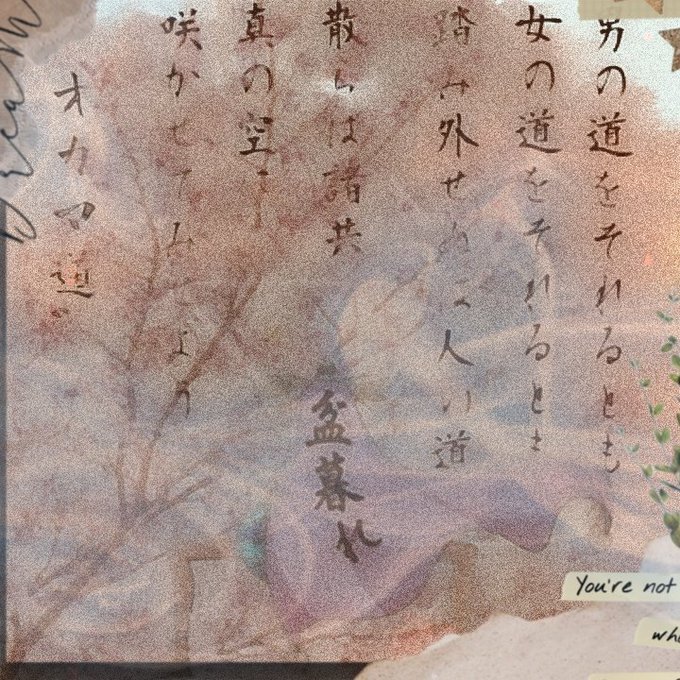 男の道をそれるとも
女の道をそれるとも
踏み外せぬは人の道
散らば諸共
真の空に
咲かせてみせよう
オカマ道。
盆暮れ
You're not